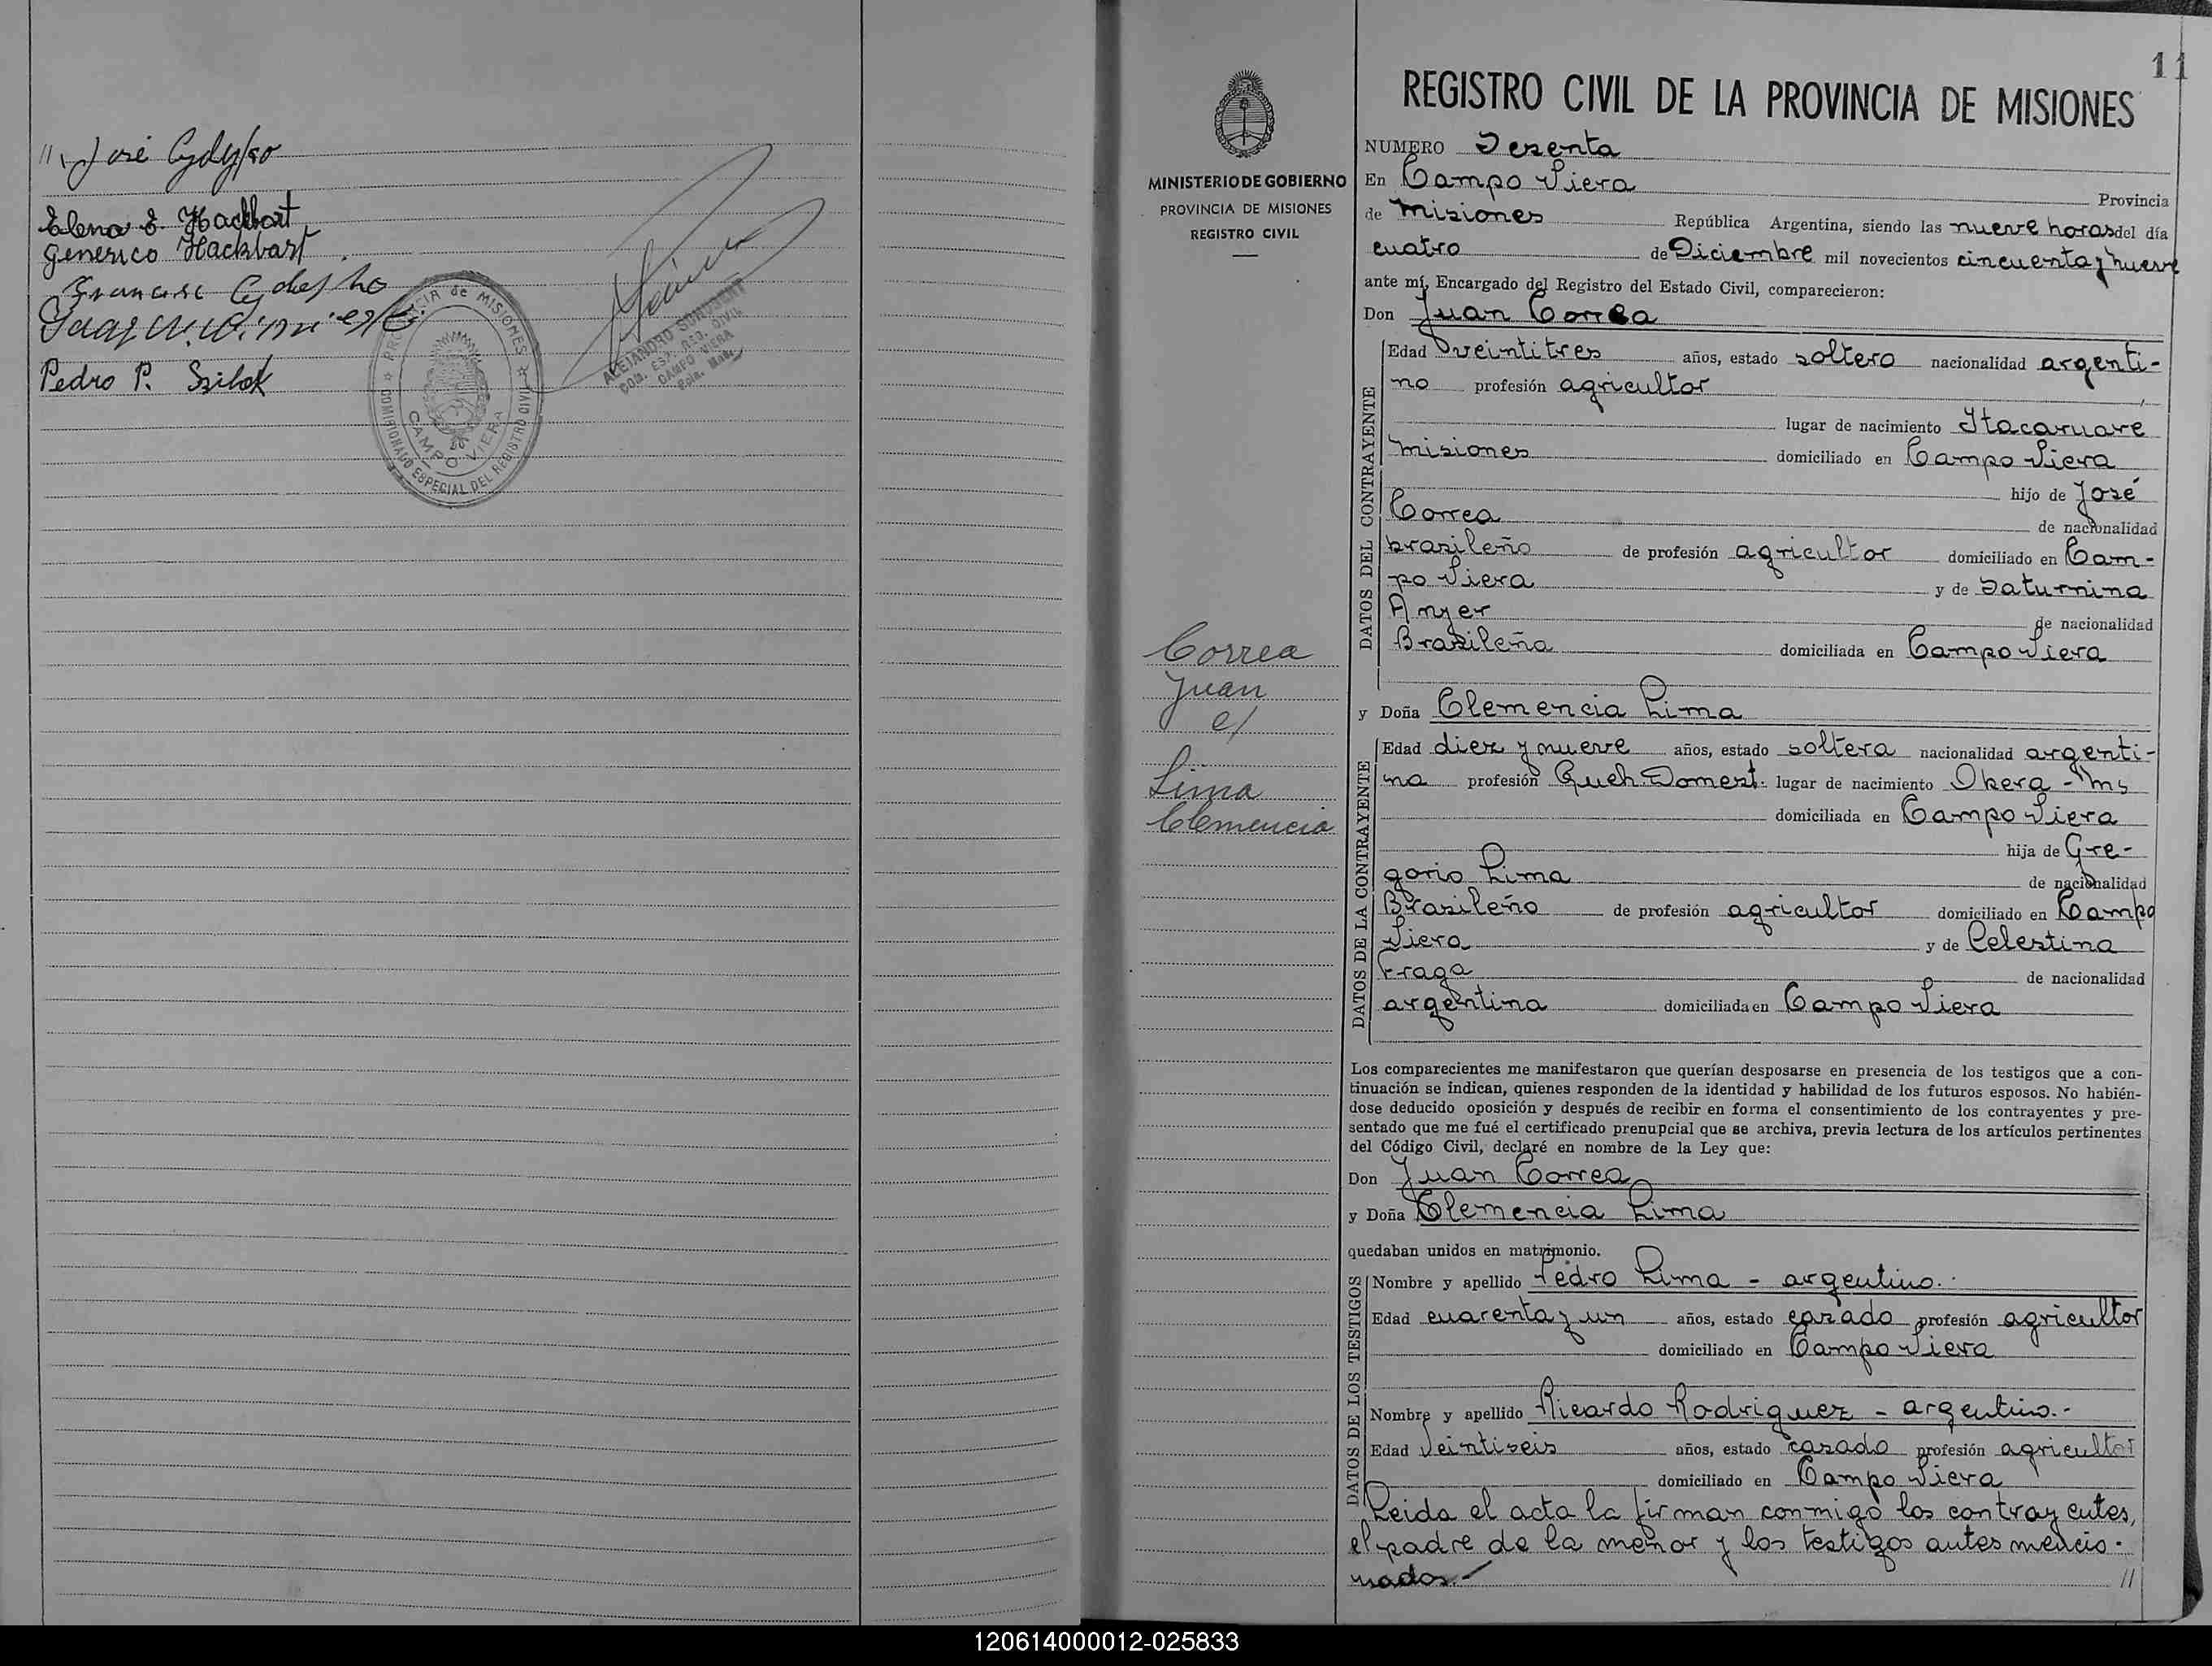 // José
Elena E. Hackbart
Generico Hackbart
Pedro P. Szilak
PROVINCIA de MISIONES
COMISIONADO ESPECIAL DEL REGISTRO CIVIL
CAMPO VIERA
ALEJANDRO
CAMPO VIERA
11
MINISTERIO DE GOBIERNO
PROVINCIA DE MISIONES
REGISTRO CIVIL
Correa
Juan
c/
Lima
Clemencia
REGISTRO CIVIL DE LA PROVINCIA DE MISIONES
NUMERO Sesenta
En Campo Viera Provincia
de Misiones República Argentina, siendo las nueve horas del día
cuatro de Diciembre mil novecientos cincuenta y nueve
ante mí, Encargado del Registro del Estado Civil, comparecieron:
Don Juan Correa
DATOS DEL CONTRAYENTE
Edad veintitres años, estado soltero nacionalidad argenti-
no profesión agricultor
lugar de nacimiento Itacaruaré
Misiones domiciliado en Campo Viera
hijo de José
Correa de nacionalidad
brasileño de profesión agricultor domiciliado en Cam-
po Viera y de Saturnina
Anyer de nacionalidad
Brasileña domiciliada en Campo Viera
y Doña Clemencia Lima
DATOS DE LA CONTRAYENTE
Edad diez y nueve años, estado soltera nacionalidad argenti-
na profesión Queh. Domest. lugar de nacimiento Obera - Ms
domiciliada en Campo Viera
hija de Gre-
gorio Lima de nacionalidad
Brasileño de profesión agricultor domiciliado en Campo
Viera y de Celestina
Fraga de nacionalidad
argentina domiciliada en Campo Viera
Los comparecientes me manifestaron que querían desposarse en presencia de los testigos que a con-
tinuación se indican, quienes responden de la identidad y habilidad de los futuros esposos. No habién-
dose deducido oposición y después de recibir en forma el consentimiento de los contrayentes y pre-
sentado que me fué el certificado prenupcial que se archiva, previa lectura de los artículos pertinentes
del Código Civil, declaré en nombre de la Ley que:
Don Juan Correa
y Doña Clemencia Lima
quedaban unidos en matrimonio.
DATOS DE LOS TESTIGOS
Nombre y apellido Pedro Lima - argentino.-
Edad cuarenta y un años, estado casado profesión agricultor
domiciliado en Campo Viera
Nombre y apellido Ricardo Rodriguez - argentino.-
Edad Veintiseis años, estado casado profesión agricultor
domiciliado en Campo Viera
Leida el acta la firman conmigo los contrayentes,
el padre de la menor y los testigos antes mencio-
nados.- //
120614000012-025833